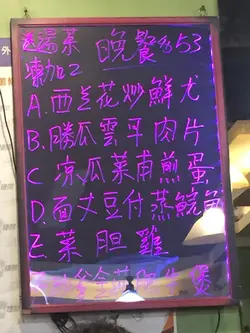 送湯菜 晚餐$53
凍加2
A.西兰花炒鮮尤
B.勝瓜雲耳肉片
C 凉瓜菜甫煎蛋
D.面丈豆付蒸鯇魚
E.菜胆雞